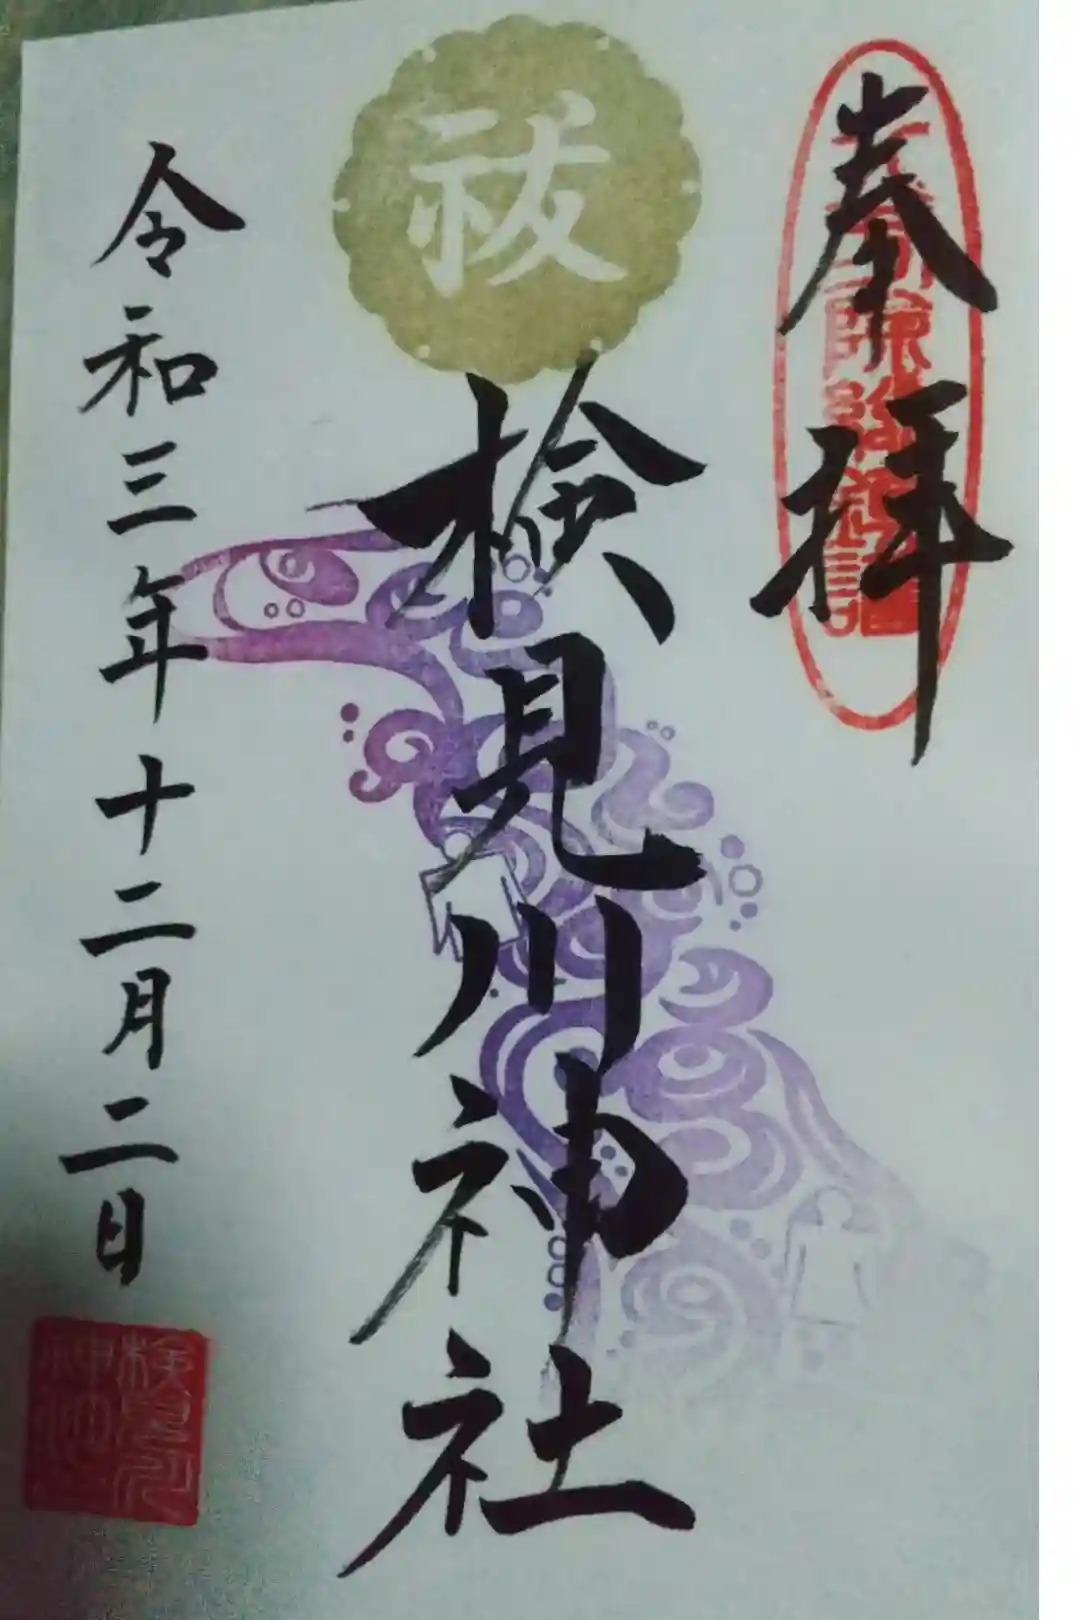 奉拝
祓
検見川神社
令和三年十二月二日
検見川
神社